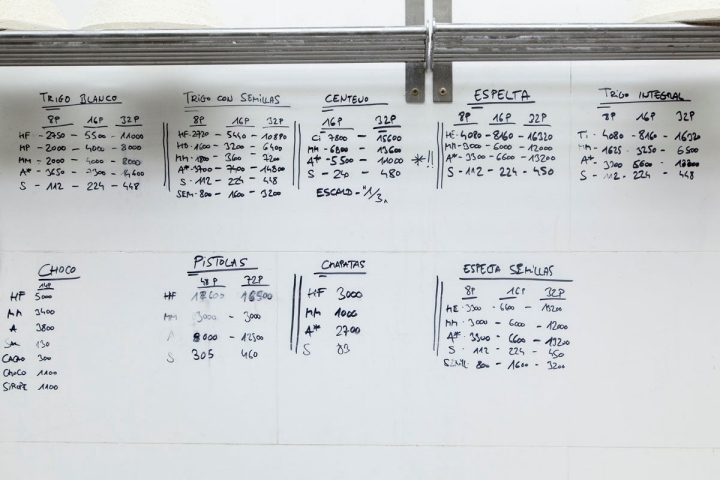 TRIGO BLANCO
8P 16P 32P
HF - 2750 - 5500 - 11000
MP - 2000 - 4000 - 8000
MM - 2000 - 4000 - 8000
A* - 3650 - 7300 - 14600
S - 112 - 224 - 448
TRIGO CON SEMILLAS
8P 16P 32P
HF - 2720 - 5440 - 10880
1600 - 3200 - 6400
MM - 1800 3600 - 7200
A* - 3700 - 7400 - 14800
S - 112 - 224 - 448
SEM - 800 - 1600 - 3200
CENTENO
16P 32P
CI 7800 - 15600
MM - 6800 - 13600
A* - 5500 11000
S - 240 - 480
ESCALD - "1/3"
*!!
ESPELTA
8P 16P 32P
HE - 4080 - 8160 - 16320
MM - 3000 - 6000 - 12000
A* - 3300 - 6600 - 13200
S - 112 - 224 - 450
TRIGO INTEGRAL
8P 16P 32P
TI - 4080 - 8160 - 16320
MM - 1625 - 3250 - 6500
A* - 3200
S - 112 - 224 - 448
CHOCO
14P
HF 5000
MM 3400
A 3800
SAL 130
CACAO 300
CHOCO 1100
SIROPE 1100
PISTOLAS
48P 72P
HF 12600 - 16500
MM 3000 - 3000
A 8000 - 12500
S 305 460
CHAPATAS
HF 3000
MM 1000
A* 2700
S 83
ESPELTA SEMILLAS
8P 16P 32P
HE - 3300 - 6600 - 13200
MM - 3000 - 6000 - 12000
A* - 3300 - 6600 - 13200
S - 112 - 224 - 450
SEMILL - 800 - 1600 - 3200